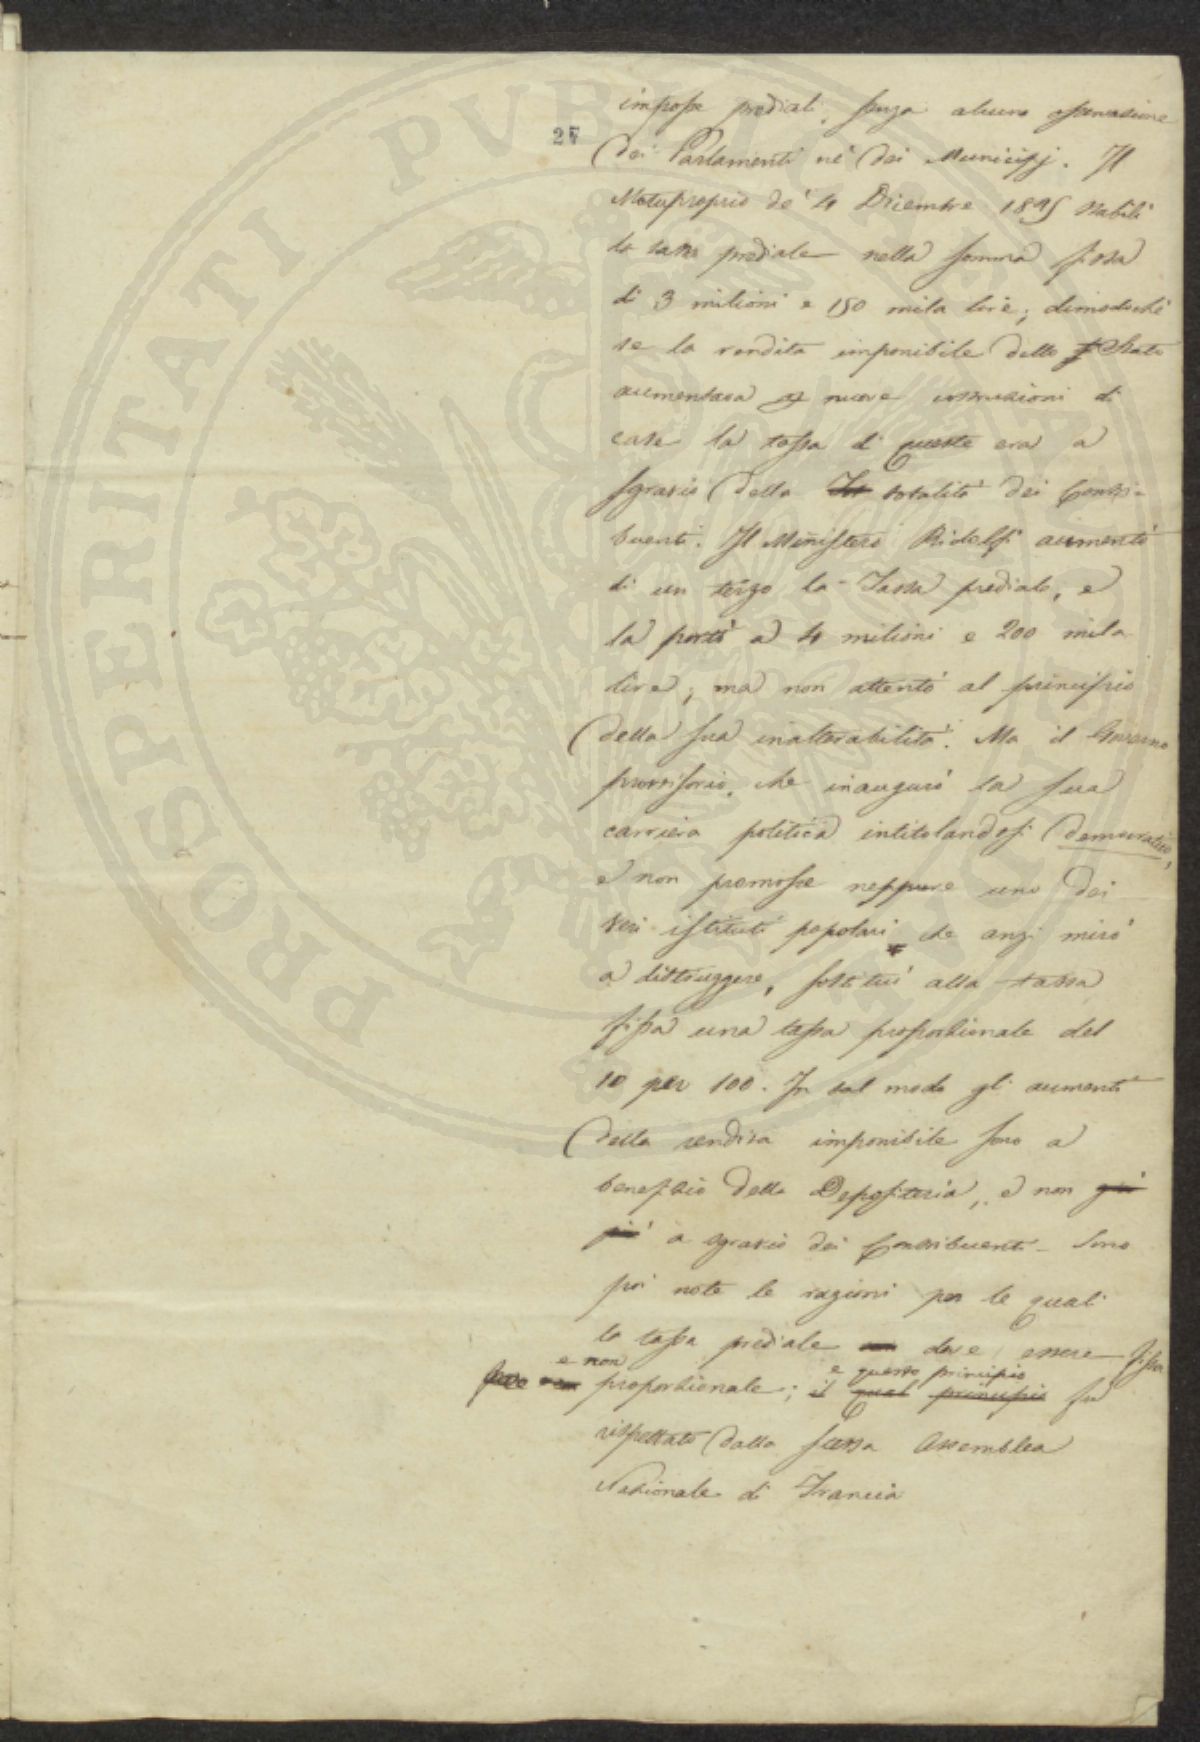 27
imposte prediali, senza alcuna osservazione
dei Parlamenti nè dei Municipj. Il
Motuproprio de' 4 Dicembre 1845 stabilì
la tassa prediale nella somma fissa
di 3 milioni e 150 mila lire; dimodochè
se la rendita imponibile dello Stato
aumentava nuove costruzioni di
case la tassa di queste era a
sgravio della totalità dei Contri-
buenti. Il Ministero Ridolfi aumentò
di un terzo la Tassa prediale, e
la portò a 4 milioni e 200 mila
lire; ma non attentò al principio
della sua inalterabilità. Ma il Governo
provvisorio, che inaugurò la sua
carriera politica intitolandosi democratico,
e non promosse neppure uno dei
veri istituti popolari che anzi mirò
a distruggere, sostituì alla tassa
fissa una tassa proporzionale del
10 per 100. In tal modo gli aumenti
della rendita imponibile sono a
benefizio della Depositeria, e non già
più a sgravio dei Contribuenti. Sono
poi note le ragioni per le quali
la tassa prediale deve essere fissa
e non e questo principio
proporzionale; il qual principio fu
rispettato dalla stessa Assemblea
Nazionale di Francia
PROSPERITATI PUBLICAE